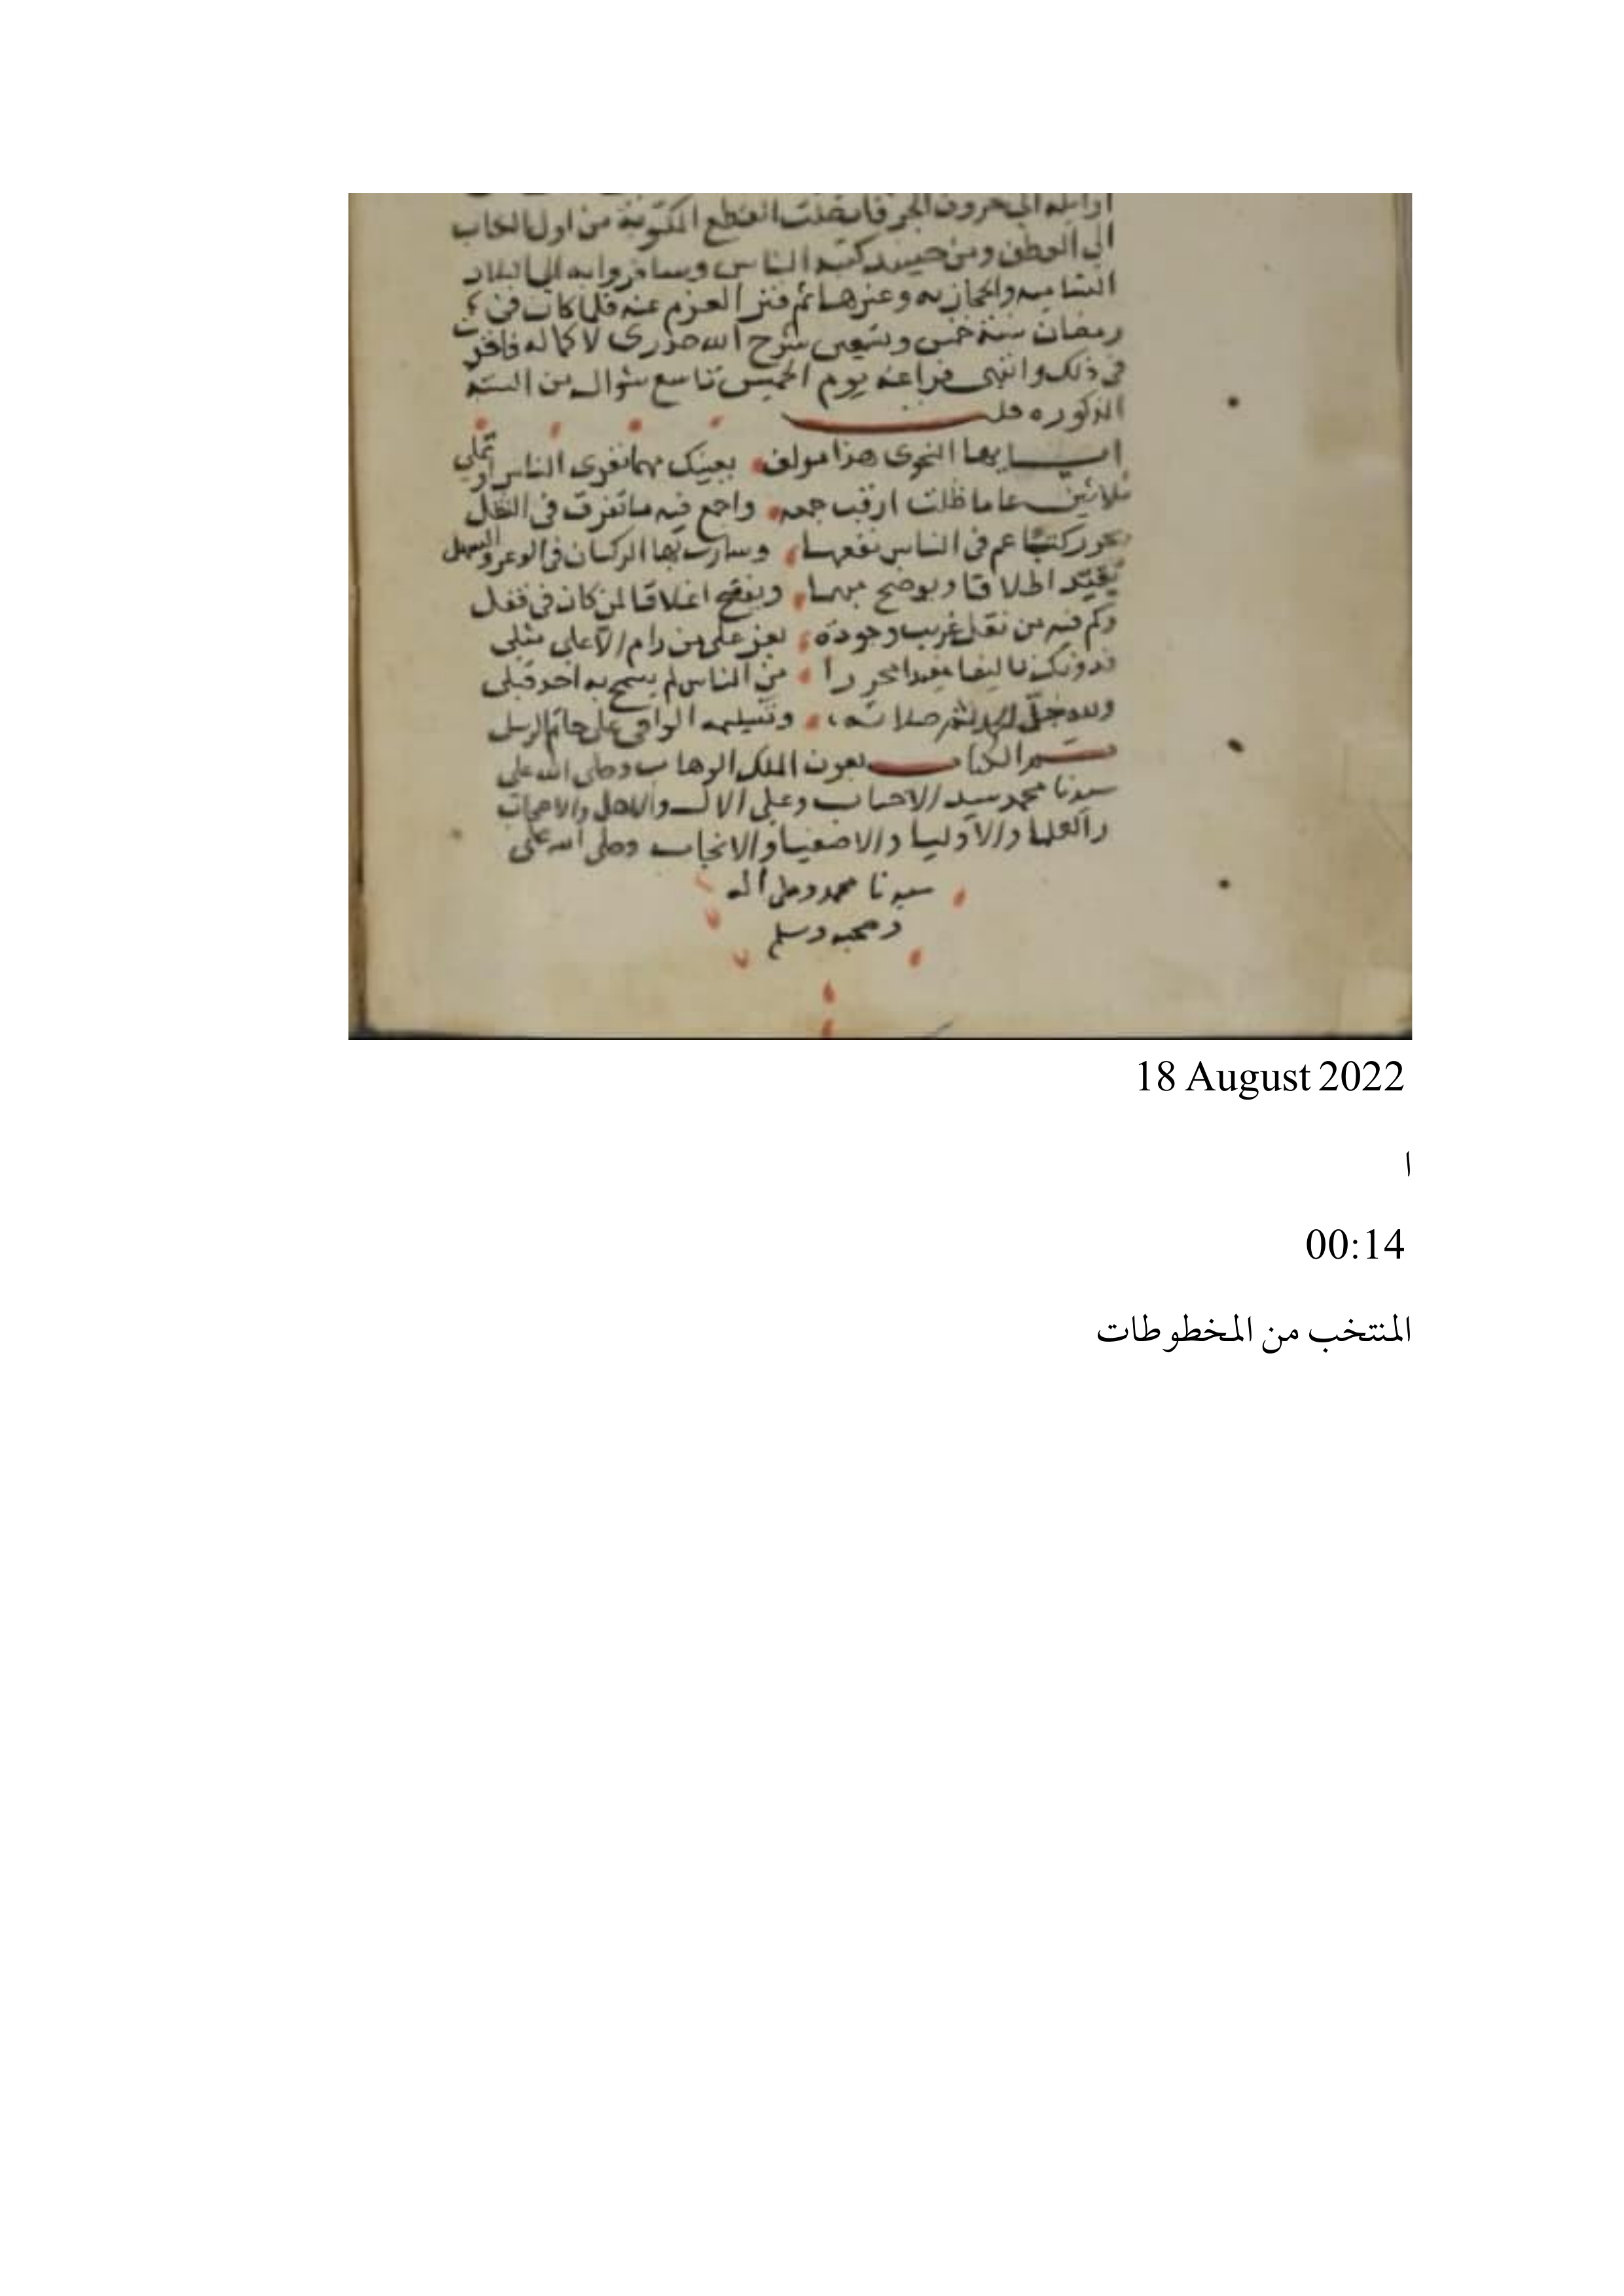 اوايله الي حروف الجر فاتصلت القطع المكتوبة من اول الكتاب
الي العطف ومن حينيد كتبه الناس وسافروا به الي البلاد
الشاميه والحجازيه وغيرها ثم فتر العزم عنه فلما كان في
رمضان سنة خمس وتسعين شرح الله صدري لاكماله
في ذلك وانتهى فراغه يوم الخميس تاسع شوال من السنة
المذكوره قلت
ايا ايها النحوى هذا مولف يعينك مهما تقرى الناس او تملي
ثلاثين عاما ظلت ارقب جمعه واجمع فيه ما تفرق في النقل
كتبا عم في الناس نفعها وسارت بها الركبان في الوعر والسهل
يقيد اطلاقا ويوضح مبهما ويفتح اغلاقا لمن كان في قفل
وكم فيه من نقل غريب وجوده يعز على من رام الا على مثلي
فدونك تاليفا مفيدا محررا من الناس لم يسمح به احد قبلي
ولله جل الحمد ثم صلاته وتسليمه الوافي على خاتم الرسل
تم الكتاب بعون الملك الوهاب وصلى الله على
سيدنا محمد سيد الاحباب وعلى الال والاهل والاصحاب
والعلما والاوليا والاصفيا والانجاب وصلى الله على
سيدنا محمد وعلى اله
وصحبه وسلم
18 August 2022
ا
00:14
المنتخب من المخطوطات